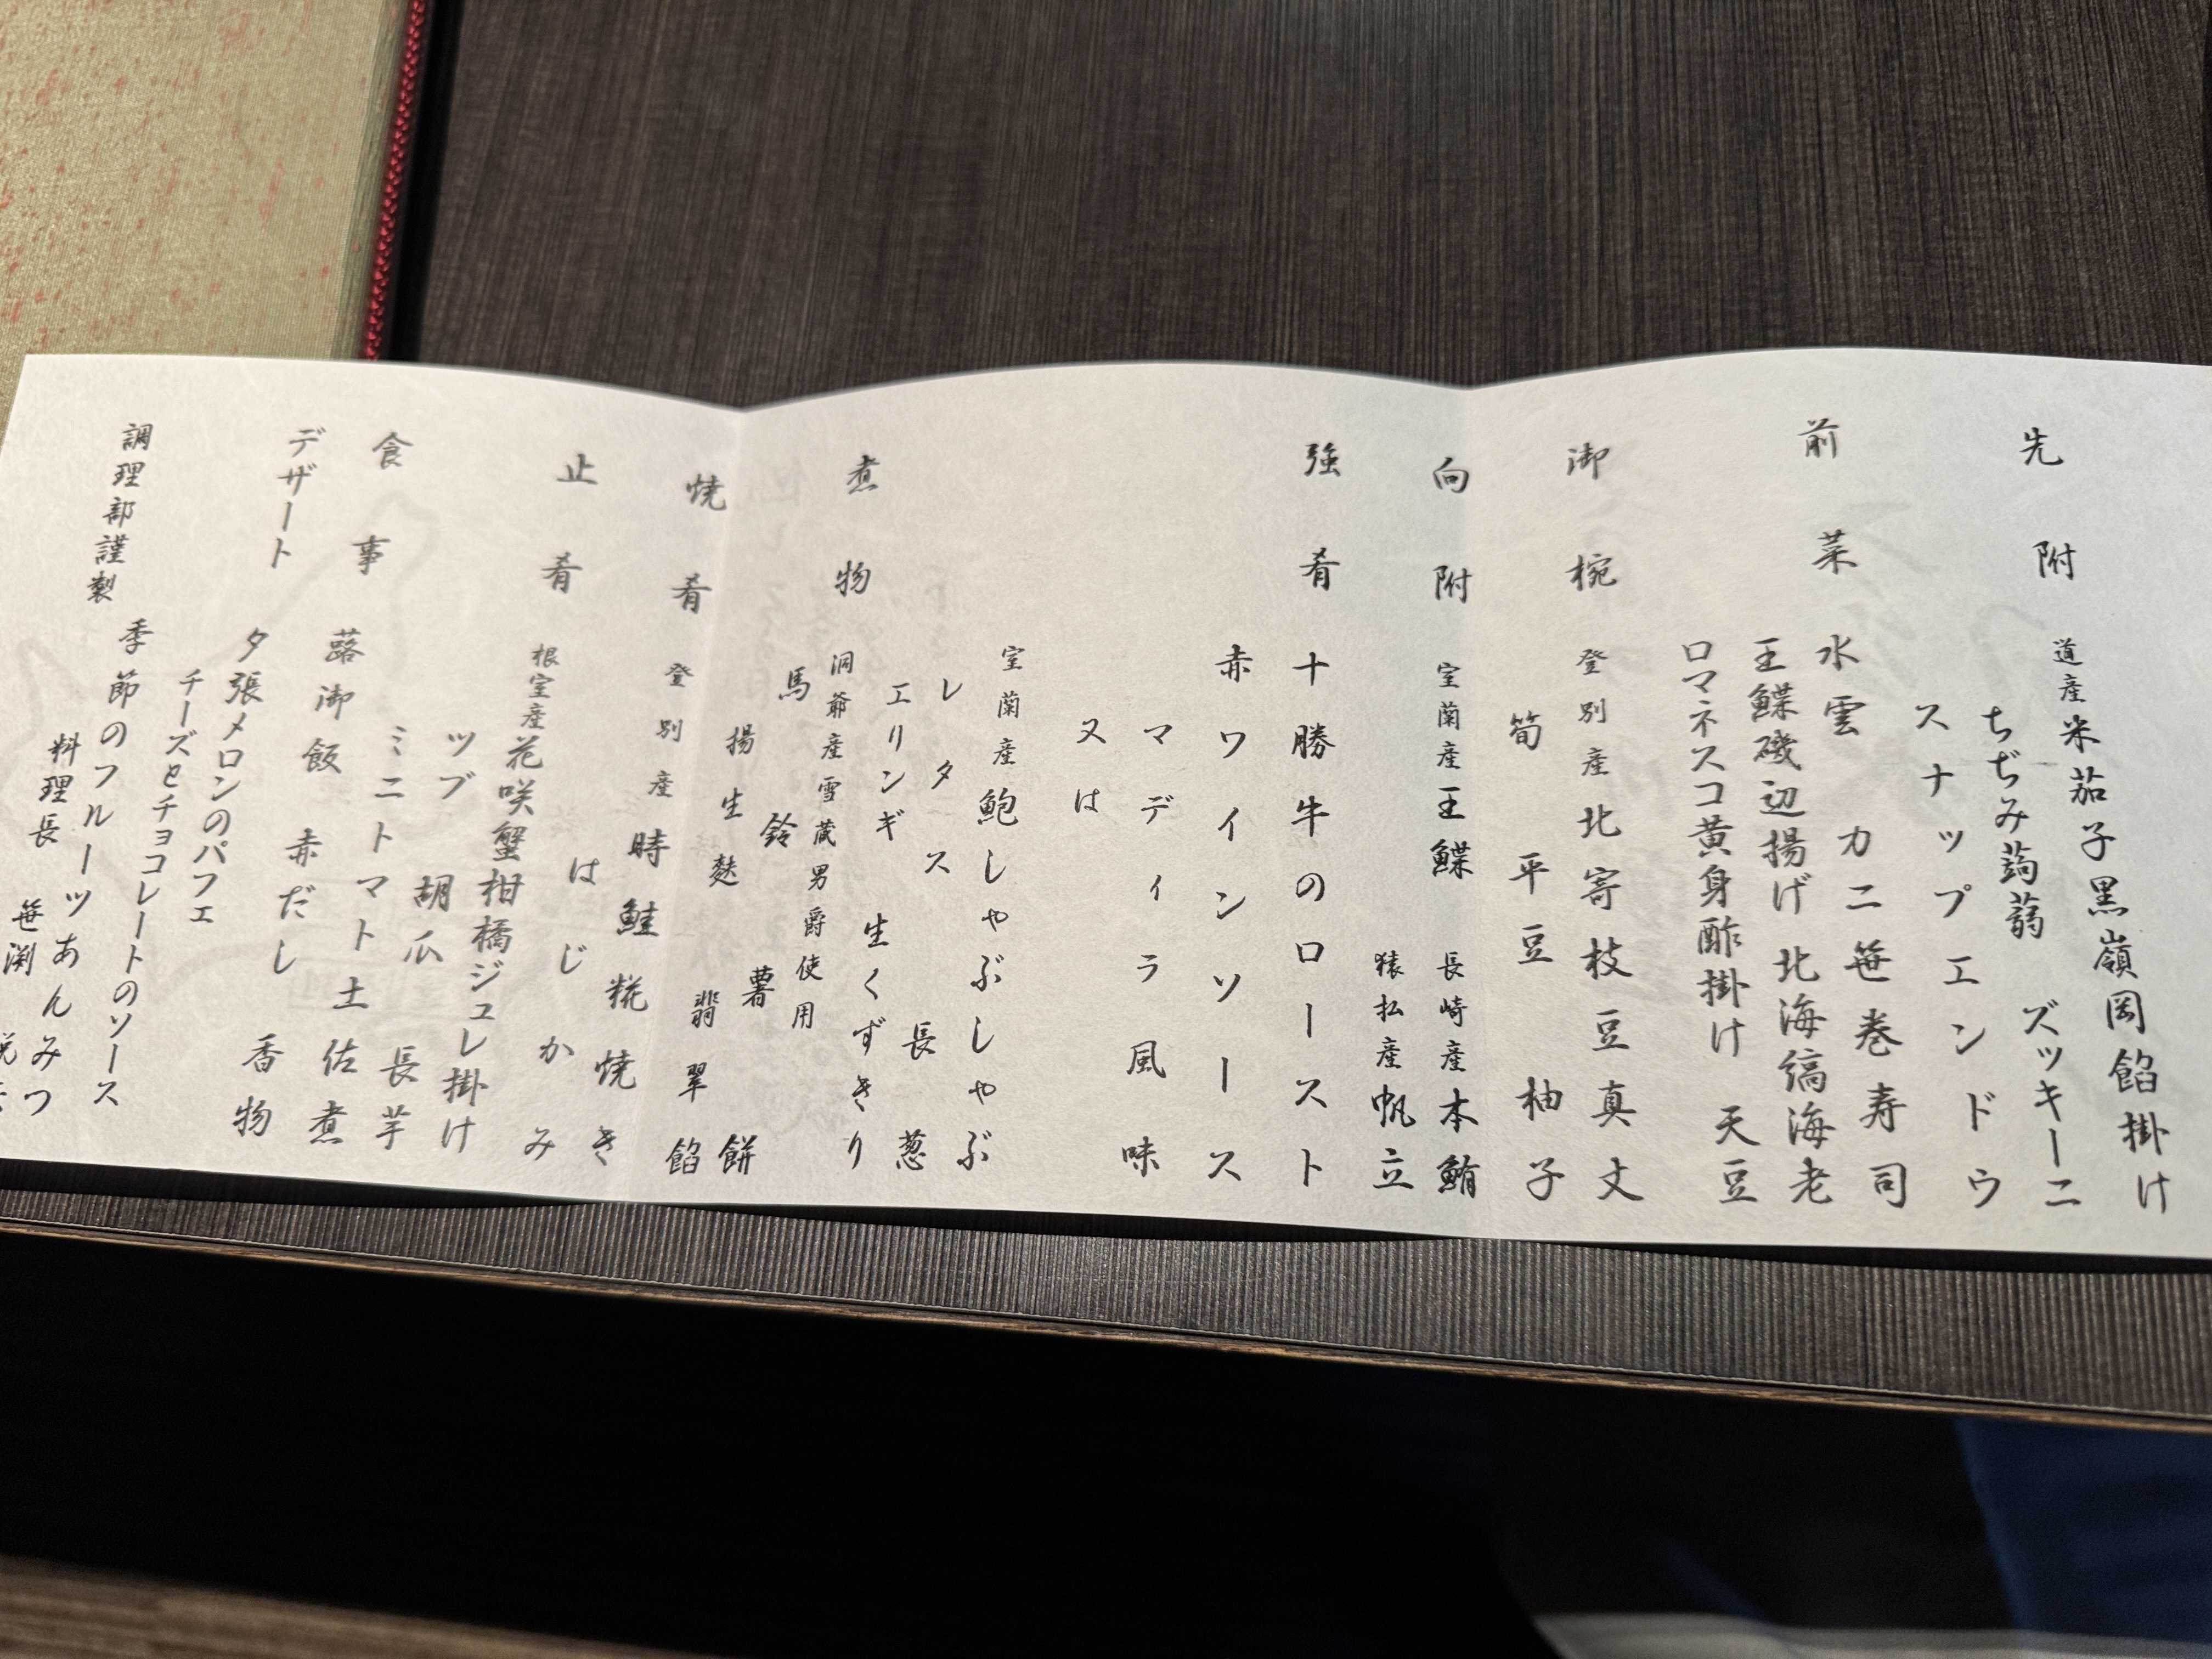 先附
道産米茄子黒嶺岡餡掛け
ちぢみ蒟蒻 ズッキーニ
スナップエンドウ
前菜
水雲 カニ笹巻寿司
王鰈磯辺揚げ 北海縞海老
ロマネスコ黄身酢掛け 天豆
御椀
登別産北寄枝豆真丈
筍 平豆 柚子
向附
室蘭産王鰈 長崎産本鮪
猿払産帆立
強肴
十勝牛のロースト
赤ワインソース
マディラ風味
又は
室蘭産鮑しゃぶしゃぶ
レタス 長葱
エリンギ 生くずきり
煮物
洞爺産雪蔵男爵使用
馬鈴薯餅
揚生麩 翡翠餡
焼肴
登別産時鮭糀焼き
はじかみ
止肴
根室産花咲蟹柑橘ジュレ掛け
ツブ 胡瓜 長芋
ミニトマト土佐煮
食事
蕗御飯 赤だし 香物
デザート
夕張メロンのパフェ
チーズとチョコレートのソース
季節のフルーツあんみつ
調理部謹製
料理長 笹渕